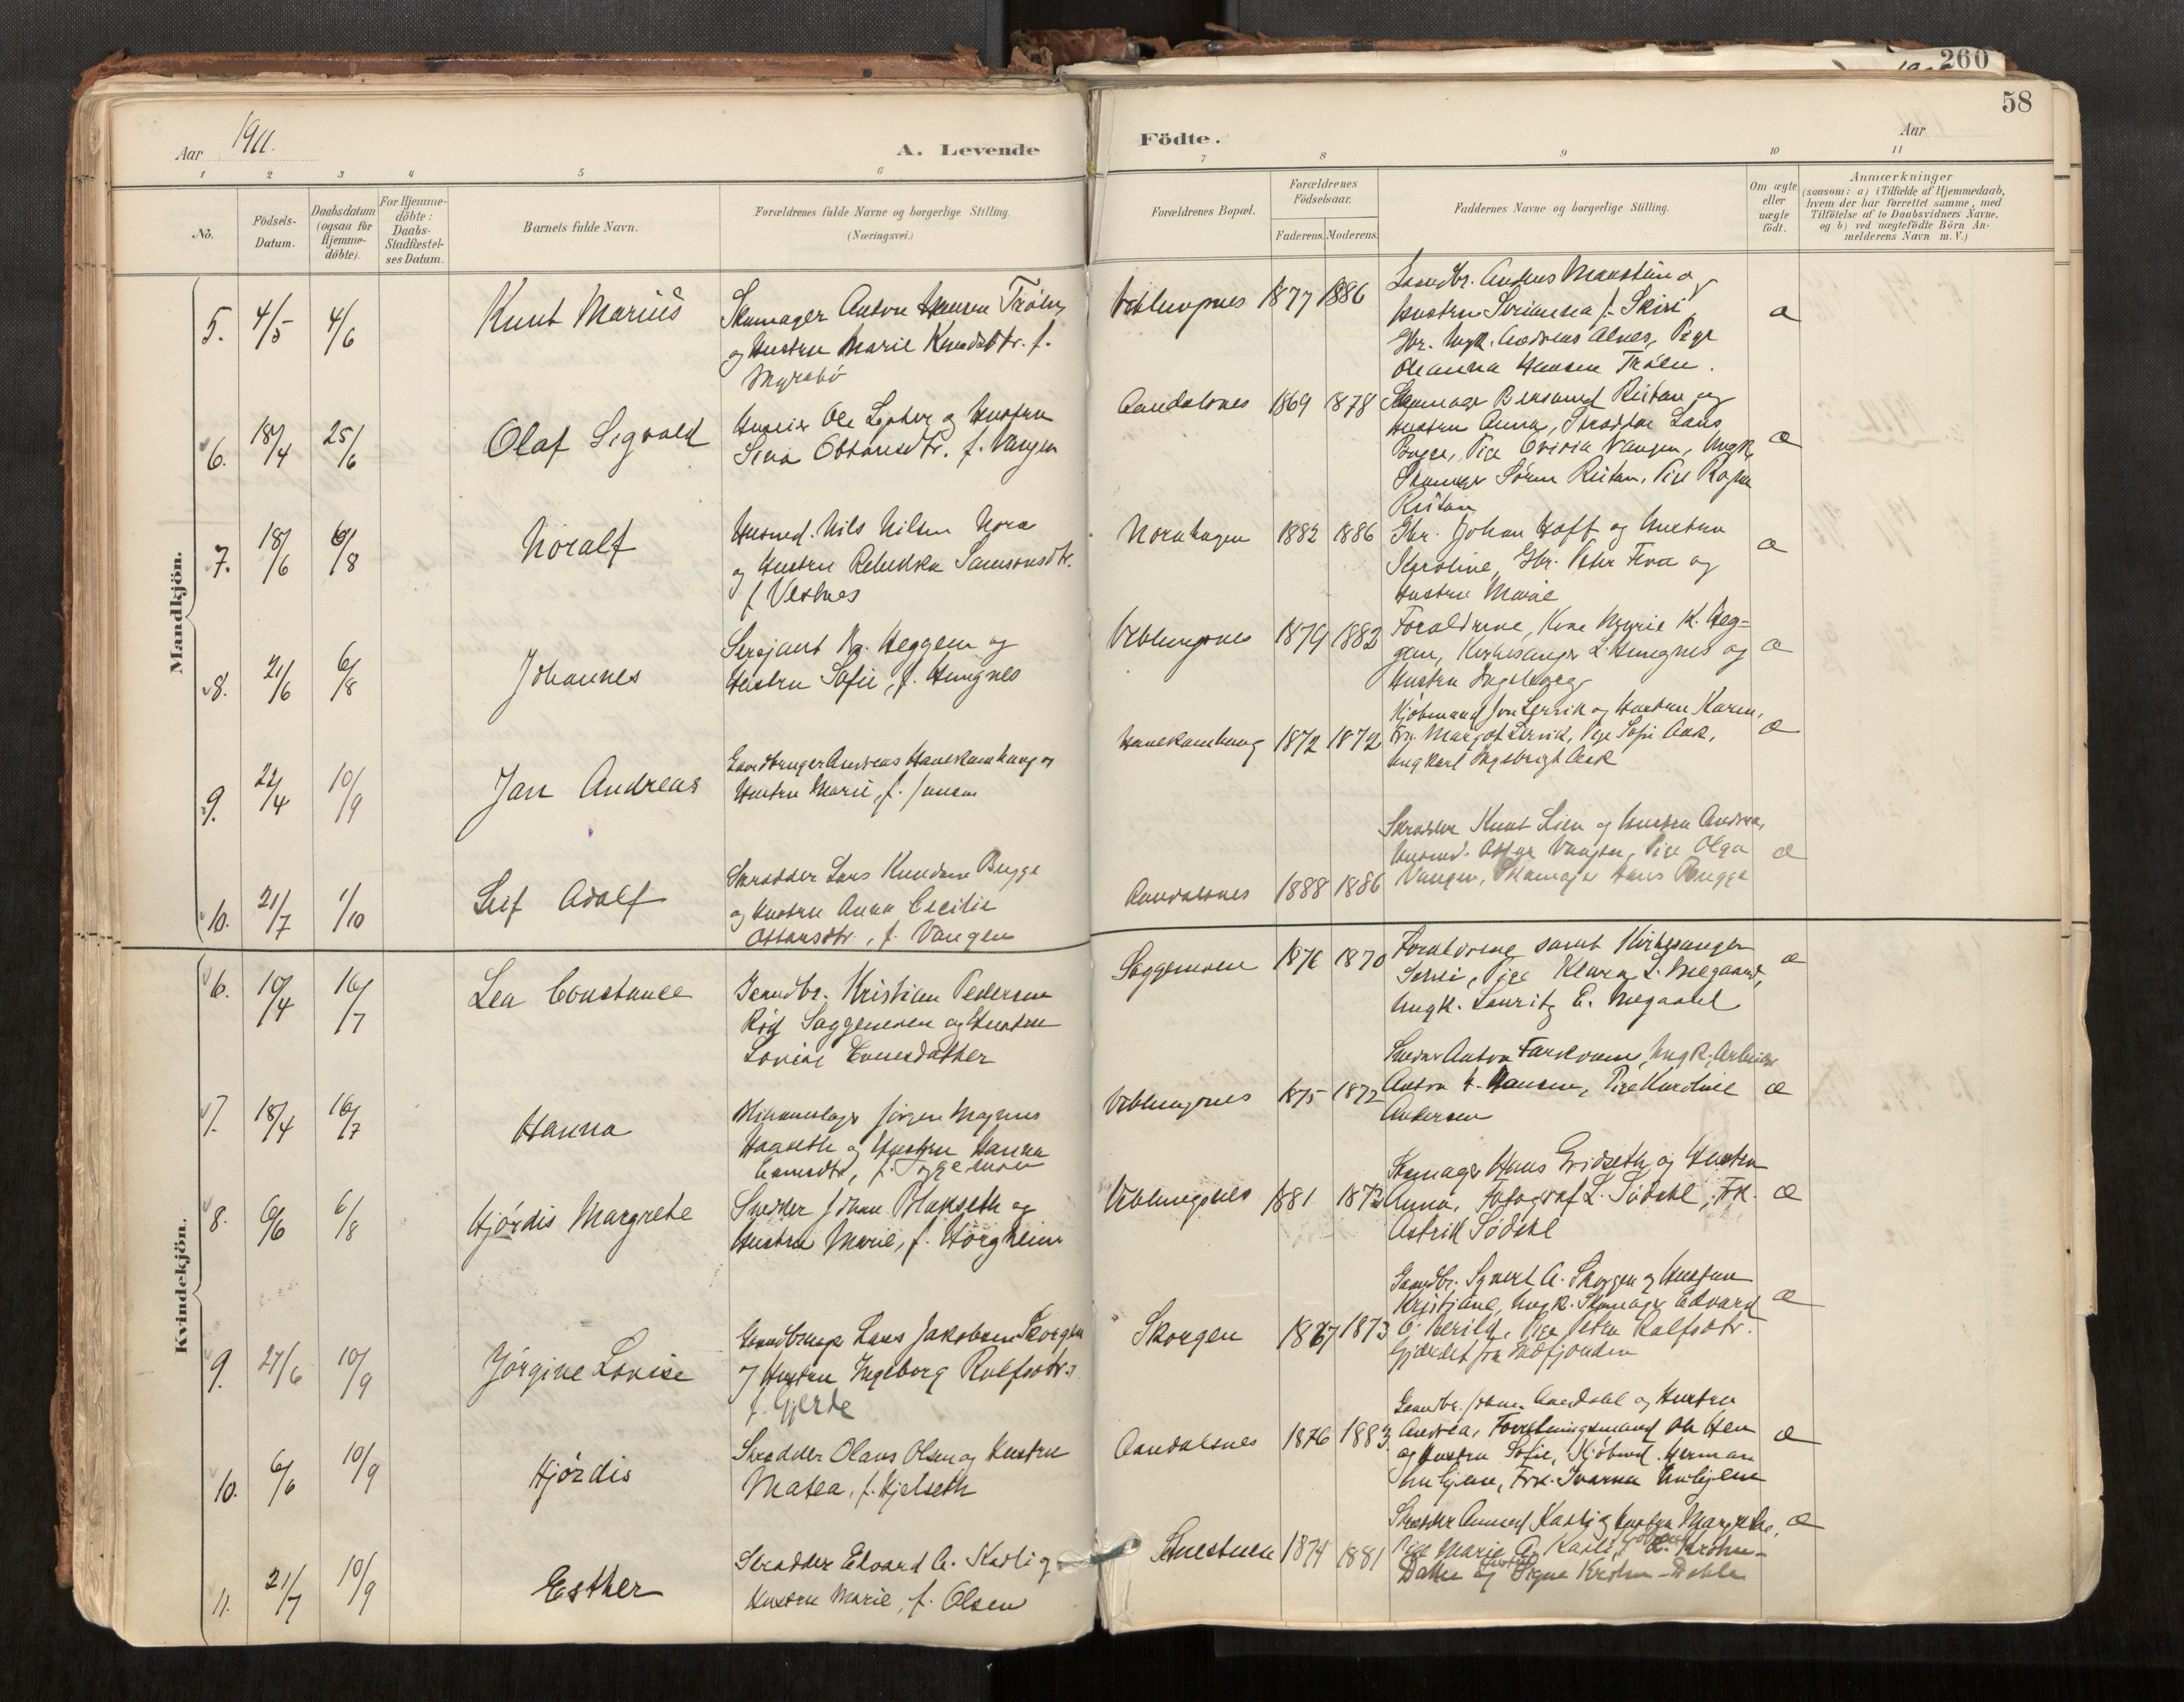 260
58
Aar 1911.
A. Levende
Födte.
Aar
1 2 3 4 5 6 7 8 9 10 11
No.
Födsels-
Datum.
Daabsdatum
(ogsaa for
Hjemme-
döbte).
For Hjemme-
döbte:
Daabs-
Stadfæstel-
ses Datum.
Barnets fulde Navn.
Forældrenes fulde Navne og borgerlige Stilling.
(Næringsvei.)
Forældrenes Bopæl.
Forældrenes
Födselsaar.
Faderens. Moderens.
Faddernes Navne og borgerlige Stilling.
Om ægte
eller
uægte
födt.
Anmærkninger
(saasom: a) i Tilfælde af Hjemmedaab,
hvem der har forrettet samme, med
Tilföielse af to Daabsvidners Navne.
og b) ved uægtefödte Börn An-
melderens Navn m. V.)
Mandkjön.
5. 4/5 4/6 Knut Marius
Skomager Anton Hansen Trölen
og Hustru Marie Knudsdtr. f.
Myrebö
Veblungsnes 1877 1886
Hustru f. Skiri
Gbr. Ungk. Andreas Alnes, Pige
Oleanna Hansen Trölen.
6. 18/4 25/6 Olaf Sigvald
Ole og Hustru
Sina Ottarsdtr. f. Vangen
Aandalsnes 1869 1878
Skomager Ristan og
Hustru Anna, Skrædder Lars
Bugge, Pige Vangen, Ungk.
Skomager Sören Ristan, Pige Ragna
Ristan
æ
7. 18/6 6/8 Noralf
Husmd. Nils Nilsen Nora
og Hustru Rebekka Samsonsdtr.
f. Vestnes
Norahagen 1882 1886
Gbr. Johan Hoff og Hustru
Karoline, Gbr. Peter Tva og
Hustru Marie
æ
8. 21/6 6/8 Johannes
Sersjant K. Heggem og
Hustru Sofie, f. Hungnes
Veblungsnes 1879 1882
Forældrene, Kone K. Heg-
gem, Kirkesanger L. Hungnes og
Hustru Ingeborg
æ
9. 22/4 10/9 Jan Andreas
Gaardbruger Andreas Hanekamhaug og
Hustru Marie, f. Jensen
Hanekamhaug 1872 1872
Kjöbmand Jon Lervik og Hustru Karen,
Frk. Margot Lervik, Pige Sofie Aak,
Ungkarl Ingebrigt Aak
æ
10. 21/7 1/10 Leif Adolf
Skrædder Lars Knudsen Bugge
og Hustru Anna Cecilie
Ottarsdtr., f. Vangen
Aandalsnes 1888 1886
Skrædder Knut Lien og Hustru Andrea,
Husmd. Vangen, Pige Olga
Vangen, Skomager Hans Bugge
æ
Kvindekjön.
6. 10/4 16/7 Lea Constance
Gaardbr. Kristian Pedersen
Röd Soggemoen og Hustru
Lovise Evensdatter
Soggemoen 1876 1870
Forældrene samt Kirkesanger
Pige Klara L. Megaard,
Ungk. Lauritz E. Megaard
æ
7. 18/4 16/7 Hanna
Jörgen Magnus
og Hustru Hanna
Veblungsnes 1875 1872
Anton Farkvam, Ungk. Arbeider
Anton H. Hansen, Pige Karoline
Andersen
æ
8. 6/6 6/8 Hjördis Margrete
Snedker Johan Blakseth og
Hustru Marie, f. Hörgheim
Veblungsnes 1881 1873
Skomager Hans Gridseth og Hustru
Anna, Fotograf L. Södahl, Frk.
Astrid Södahl
æ
9. 27/6 10/9 Jörgine Lovise
Gaardbruger Lars Jakobsen Skorgen
og Hustru Ingeborg Rolfsdtr.
f. Gjerde
Skorgen 1867 1873
Gaardbr. Syvert A. Skorgen og Hustru
Kristiane, Ungk. Skomager Edvard
Pige Petra Rolfsdtr.
Gjerdet fra Indfjorden
æ
10. 6/6 10/9 Hjördis
Skrædder Olaus Olsen og Hustru
Matea, f. Hjelseth
Aandalsnes 1876 1883
Gaardbr. Johan Aandahl og Hustru
Andrea, Forretningsmand Ole Hen
og Hustru Sofie, Kjöbmd. Herman
Unhjem, Frk. Ivarna Unhjem
æ
11. 21/7 10/9 Esther
Skrædder Edvard A. Kavli og
Hustru Marie, f. Olsen
1874 1881
Skrædder Kavli og Hustru Margrethe,
Pige Marie A. Kavli, K. Krohn-
Dahle og Hustru Signe Krohn-Dahle
æ